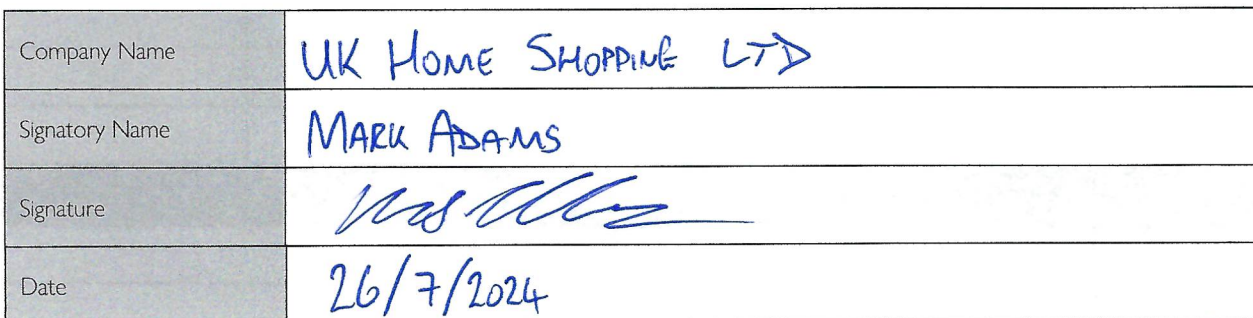 Company Name UK HOME SHOPPING LTD
Signatory Name MARK ADAMS
Signature
Date 26/7/2024